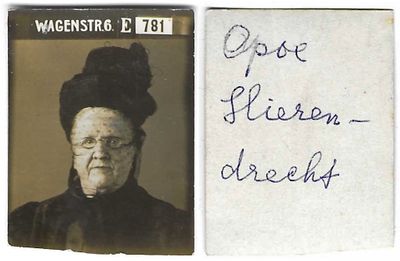 WAGENSTR.6. E 781
Opoe
Slieren-
drecht